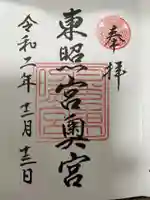 奉拝
東照宮奥宮
令和二年十二月十三日